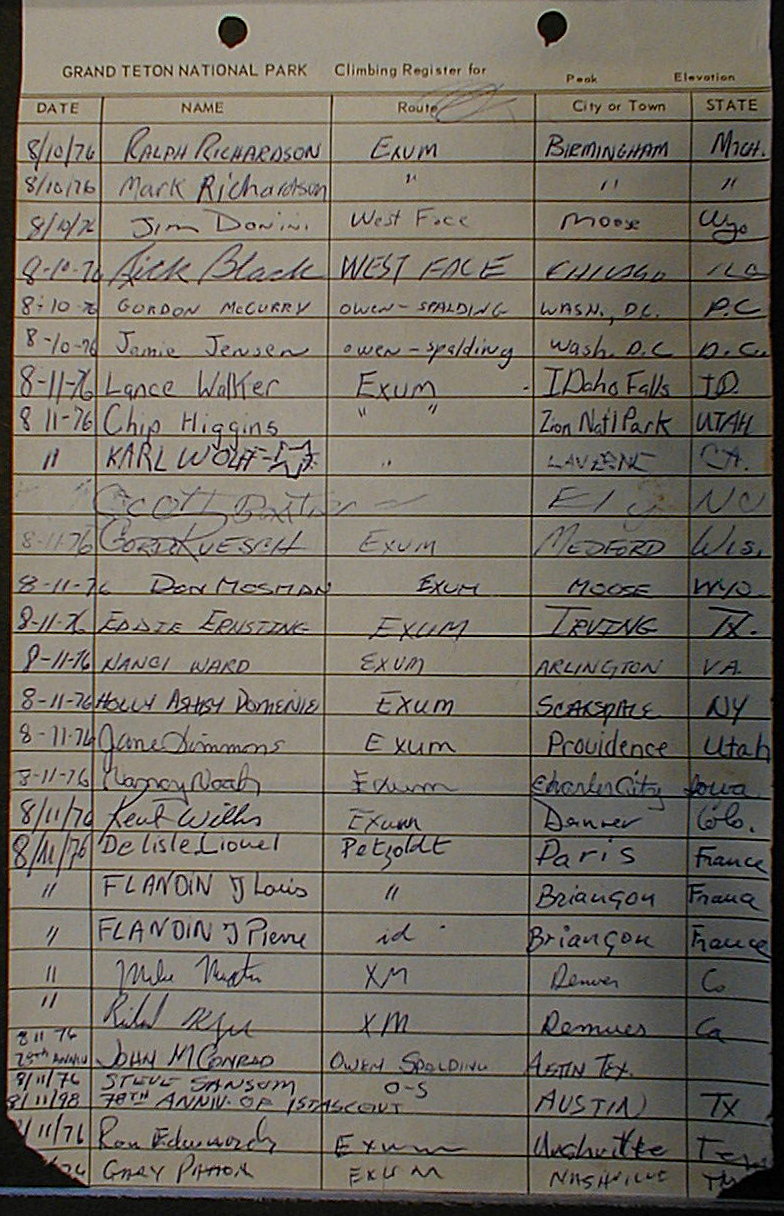 GRAND TETON NATIONAL PARK Climbing Register for Peak Elevation
DATE NAME Route City or Town STATE
8/10/76 RALPH RICHARDSON EXUM BIRMINGHAM MICH.
8/10/76 Mark Richardson " " "
8/10/76 Jim Donini West Face Moose Wyo
8-10-76 Rick Black WEST FACE CHICAGO ILL
8-10-76 GORDON McCURRY OWEN-SPALDING WASH., DC. D.C
8-10-76 Jamie Jensen owen-spalding Wash. D.C D.C.
8-11-76 Lance Walker Exum IDaho Falls ID.
8 11-76 Chip Higgins " " Zion Nat'l Park UTAH
" KARL WOLF " LAVERNE CA.
SCOTT Ely
8-11-76 GORD RUESCH EXUM MEDFORD WIS.
8-11-76 DON MOSMAN EXUM MOOSE WYO.
8-11-76 EDDIE ERNSTING EXUM IRVING TX.
8-11-76 NANCI WARD EXUM ARLINGTON VA.
8-11-76 HOLLY ASHBY DOMENIE EXUM SCARSDALE NY
8-11-76 Jane Simmons Exum Providence Utah
8-11-76 Noah Exum Charles City Iowa
8/11/76 Kent Willis Exum Denver Colo.
8/11/76 Delisle Lionel Petzoldt Paris France
" FLANDIN J Louis " Briançon France
" FLANDIN J Pierre id Briançon France
" Mike XM Denver Co
" XM Ca
8 11 76
28th ANNIV JOHN M CONRAD OWEN SPALDING AUSTIN TEX.
8/11/76 STEVE SANSOM O-S
8/11/98 78TH ANNIV. OF 1ST ASCENT AUSTIN TX
8/11/76 Ron Edwards Exum Nashville Tenn
GARY EXUM NASHVILLE